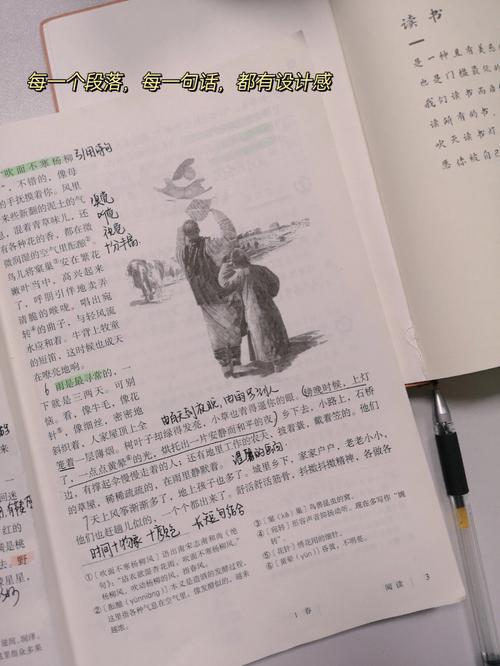 每一个段落，每一句话，都有设计感
读书
是一种
也是门槛最低的
我们读书而后
读所有的书，
吹灭读书灯
吹面不寒杨柳
引用诗句
”，不错的，像母
的手抚摸着你。风里
来些新翻的泥土的气
息，混着青草味儿，还
有各种花的香，都在微
微润湿的空气里酝酿②。
鸟儿将窠巢③安在繁花
嫩叶当中，高兴起来
了，呼朋引伴地卖弄
清脆的喉咙，唱出宛
转④的曲子，与轻风流
水应和着。牛背上牧童
的短笛，这时候也成天
在嘹亮地响。
触觉
嗅觉
视觉
6 雨是最寻常的，一
下就是三两天。可别
恼。看，像牛毛，像花
针⑤，像细丝，密密地
斜织着，人家屋顶上全
笼着一层薄烟。树叶子却绿得发亮，小草也青得逼你的眼。傍晚时候，上灯
了，一点点黄晕⑥的光，烘托出一片安静而和平的夜。乡下去，小路上，石桥
边，有撑起伞慢慢走着的人；还有地里工作的农夫，披着蓑，戴着笠的。他们
的草屋，稀稀疏疏的，在雨里静默着。
由白天到夜晚，由雨到人
7 天上风筝渐渐多了，地上孩子也多了。城里乡下，家家户户，老老小小，
他们也赶趟儿似的，一个个都出来了。舒活舒活筋骨，抖擞抖擞精神，各做各
时间+物象+景色
长短句结合
①〔吹面不寒杨柳风〕语出南宋志南和尚《绝
句》：“沾衣欲湿杏花雨，吹面不寒杨柳风。”
杨柳风，吹动杨柳的风，指春风。
②〔酝酿（yùnniàng）〕本义是造酒的发酵过程，
这里指各种气息在空气里，像发酵似的，越来
越浓。
③〔窠（kē）巢〕鸟兽昆虫的窝。
④〔宛转〕形容声音抑扬动听。现在多写作“婉
转”。
⑤〔花针〕绣花用的细针。
⑥〔黄晕（yùn）〕昏黄，不明亮。
1 春
阅读
3